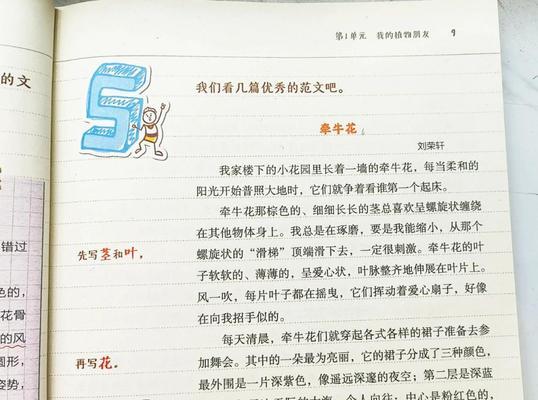 第1单元 我的植物朋友 9
的文
我们看几篇优秀的范文吧。
牵牛花
刘荣轩
我家楼下的小花园里长着一墙的牵牛花，每当柔和的
阳光开始普照大地时，它们就争着看谁第一个起床。
牵牛花那棕色的、细细长长的茎总喜欢呈螺旋状缠绕
在其他物体身上。我总是在琢磨，要是我能缩小，从那个
螺旋状的“滑梯”顶端滑下去，一定很刺激。牵牛花的叶
子软软的、薄薄的，呈爱心状，叶脉整齐地伸展在叶片上。
风一吹，每片叶子都在摇曳，它们挥动着爱心扇子，好像
在向我招手似的。
每天清晨，牵牛花们就穿起各式各样的裙子准备去参
加舞会。其中的一朵最为亮丽，它的裙子分成了三种颜色，
最外围是一片深紫色，像遥远深邃的夜空；第二层是深蓝
个人向往；中心是粉红色的，
先写茎和叶，
再写花。
错过
色的，
花骨
的风
圆形，
姿势，